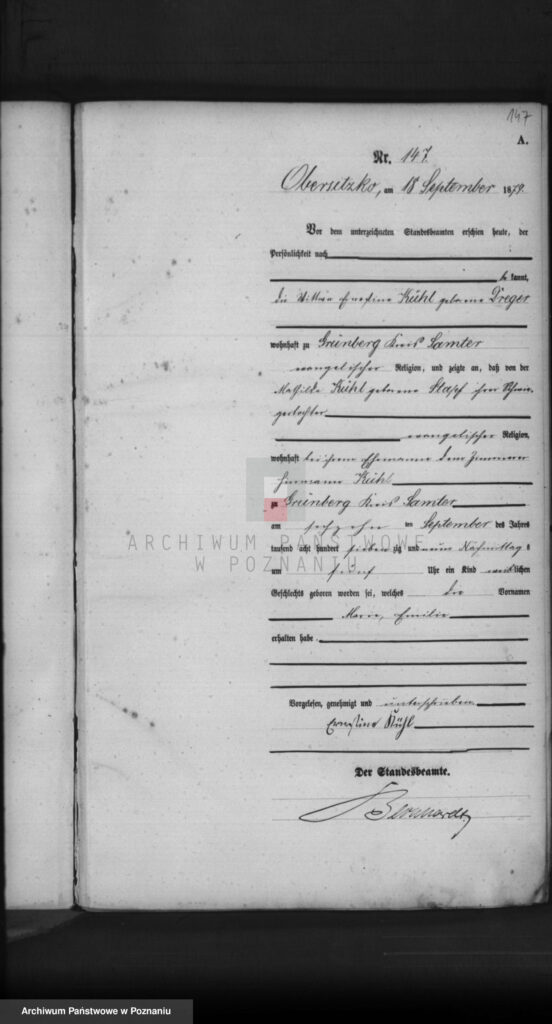 147
A.
Nr. 147.
Obersitzko, am 18 September 1879.
Vor dem unterzeichneten Standesbeamten erschien heute, der
Persönlichkeit nach
be kannt,
die Wittwe Ernestine Kühl geborene Dreger
wohnhaft zu Grünberg Kreis Samter
evangelischer Religion, und zeigte an, daß von der
Mathilde Kühl geborene ihrer Schwie-
gertochter
evangelischer Religion,
wohnhaft bei ihrem Ehemanne dem Zimmerer
Hermann Kühl
zu Grünberg Kreis Samter
am sechzehn ten September des Jahres
tausend acht hundert sieben zig und neun Nachmittags
um fünf Uhr ein Kind weiblichen
Geschlechts geboren worden sei, welches die Vornamen
Marie, Emilie
erhalten habe.
Vorgelesen, genehmigt und unterschrieben
Ernestine Kühl
Der Standesbeamte.
Bernhardt
ARCHIWUM PAŃSTWOWE
W POZNANIU
Archiwum Państwowe w Poznaniu